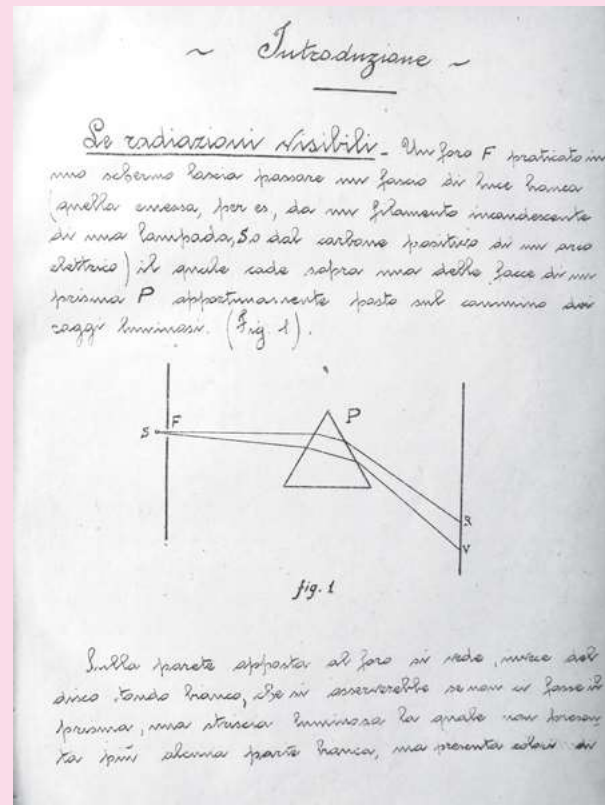 ~ Introduzione ~
Le radiazioni visibili_ Un foro F praticato in
uno schermo lascia passare un fascio di luce bianca
(quella emessa, per es, da un filamento incandescente
di una lampada, S o dal carbone positivo di un arco
elettrico) il quale cade sopra una delle facce di un
prisma P opportunamente posto sul cammino dei
raggi luminosi. (Fig. 1).
S F P
R
V
fig. 1
Sulla parete opposta al foro si vede, invece del
disco tondo bianco, che si osserverebbe se non ci fosse il
prisma, una striscia luminosa la quale non presen-
ta più alcuna parte bianca, ma presenta colori di